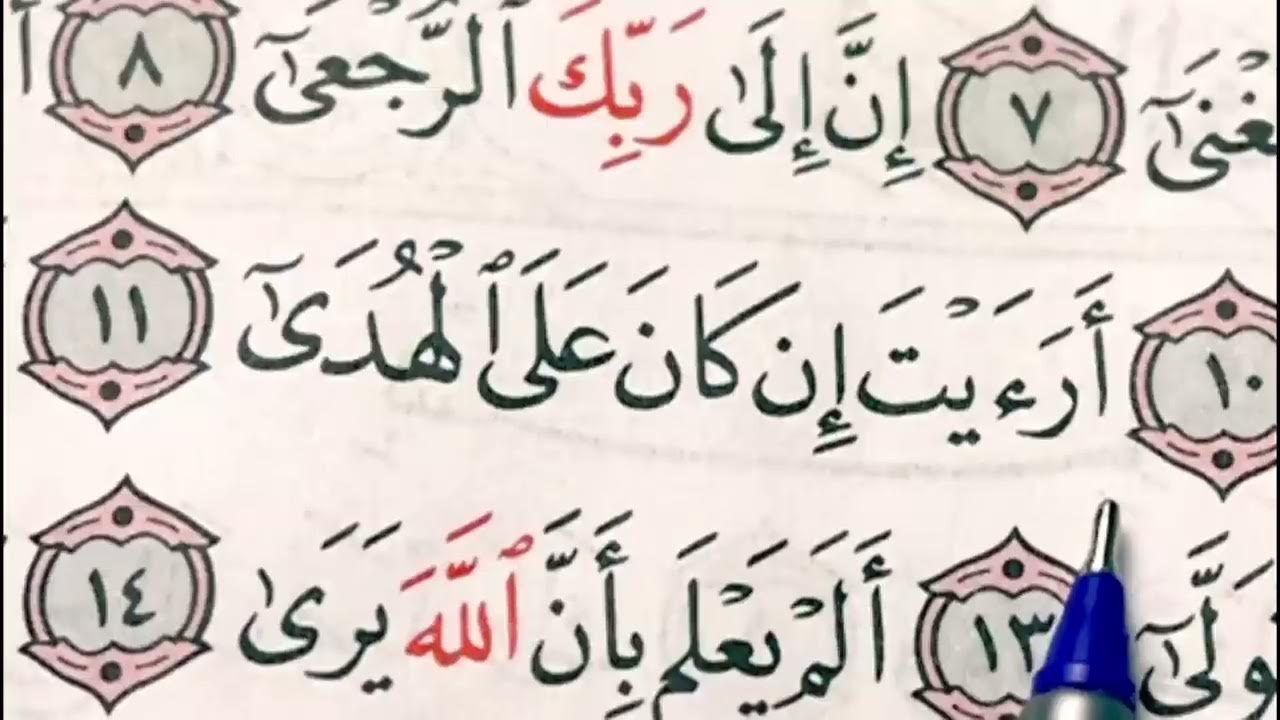 غْنَىٰٓ ٧ إِنَّ إِلَىٰ رَبِّكَ ٱلرُّجْعَىٰٓ ٨ أ
١٠ أَرَءَيْتَ إِن كَانَ عَلَى ٱلْهُدَىٰٓ ١١
وَلَّىٰٓ ١٣ أَلَمْ يَعْلَم بِأَنَّ ٱللَّهَ يَرَىٰ ١٤